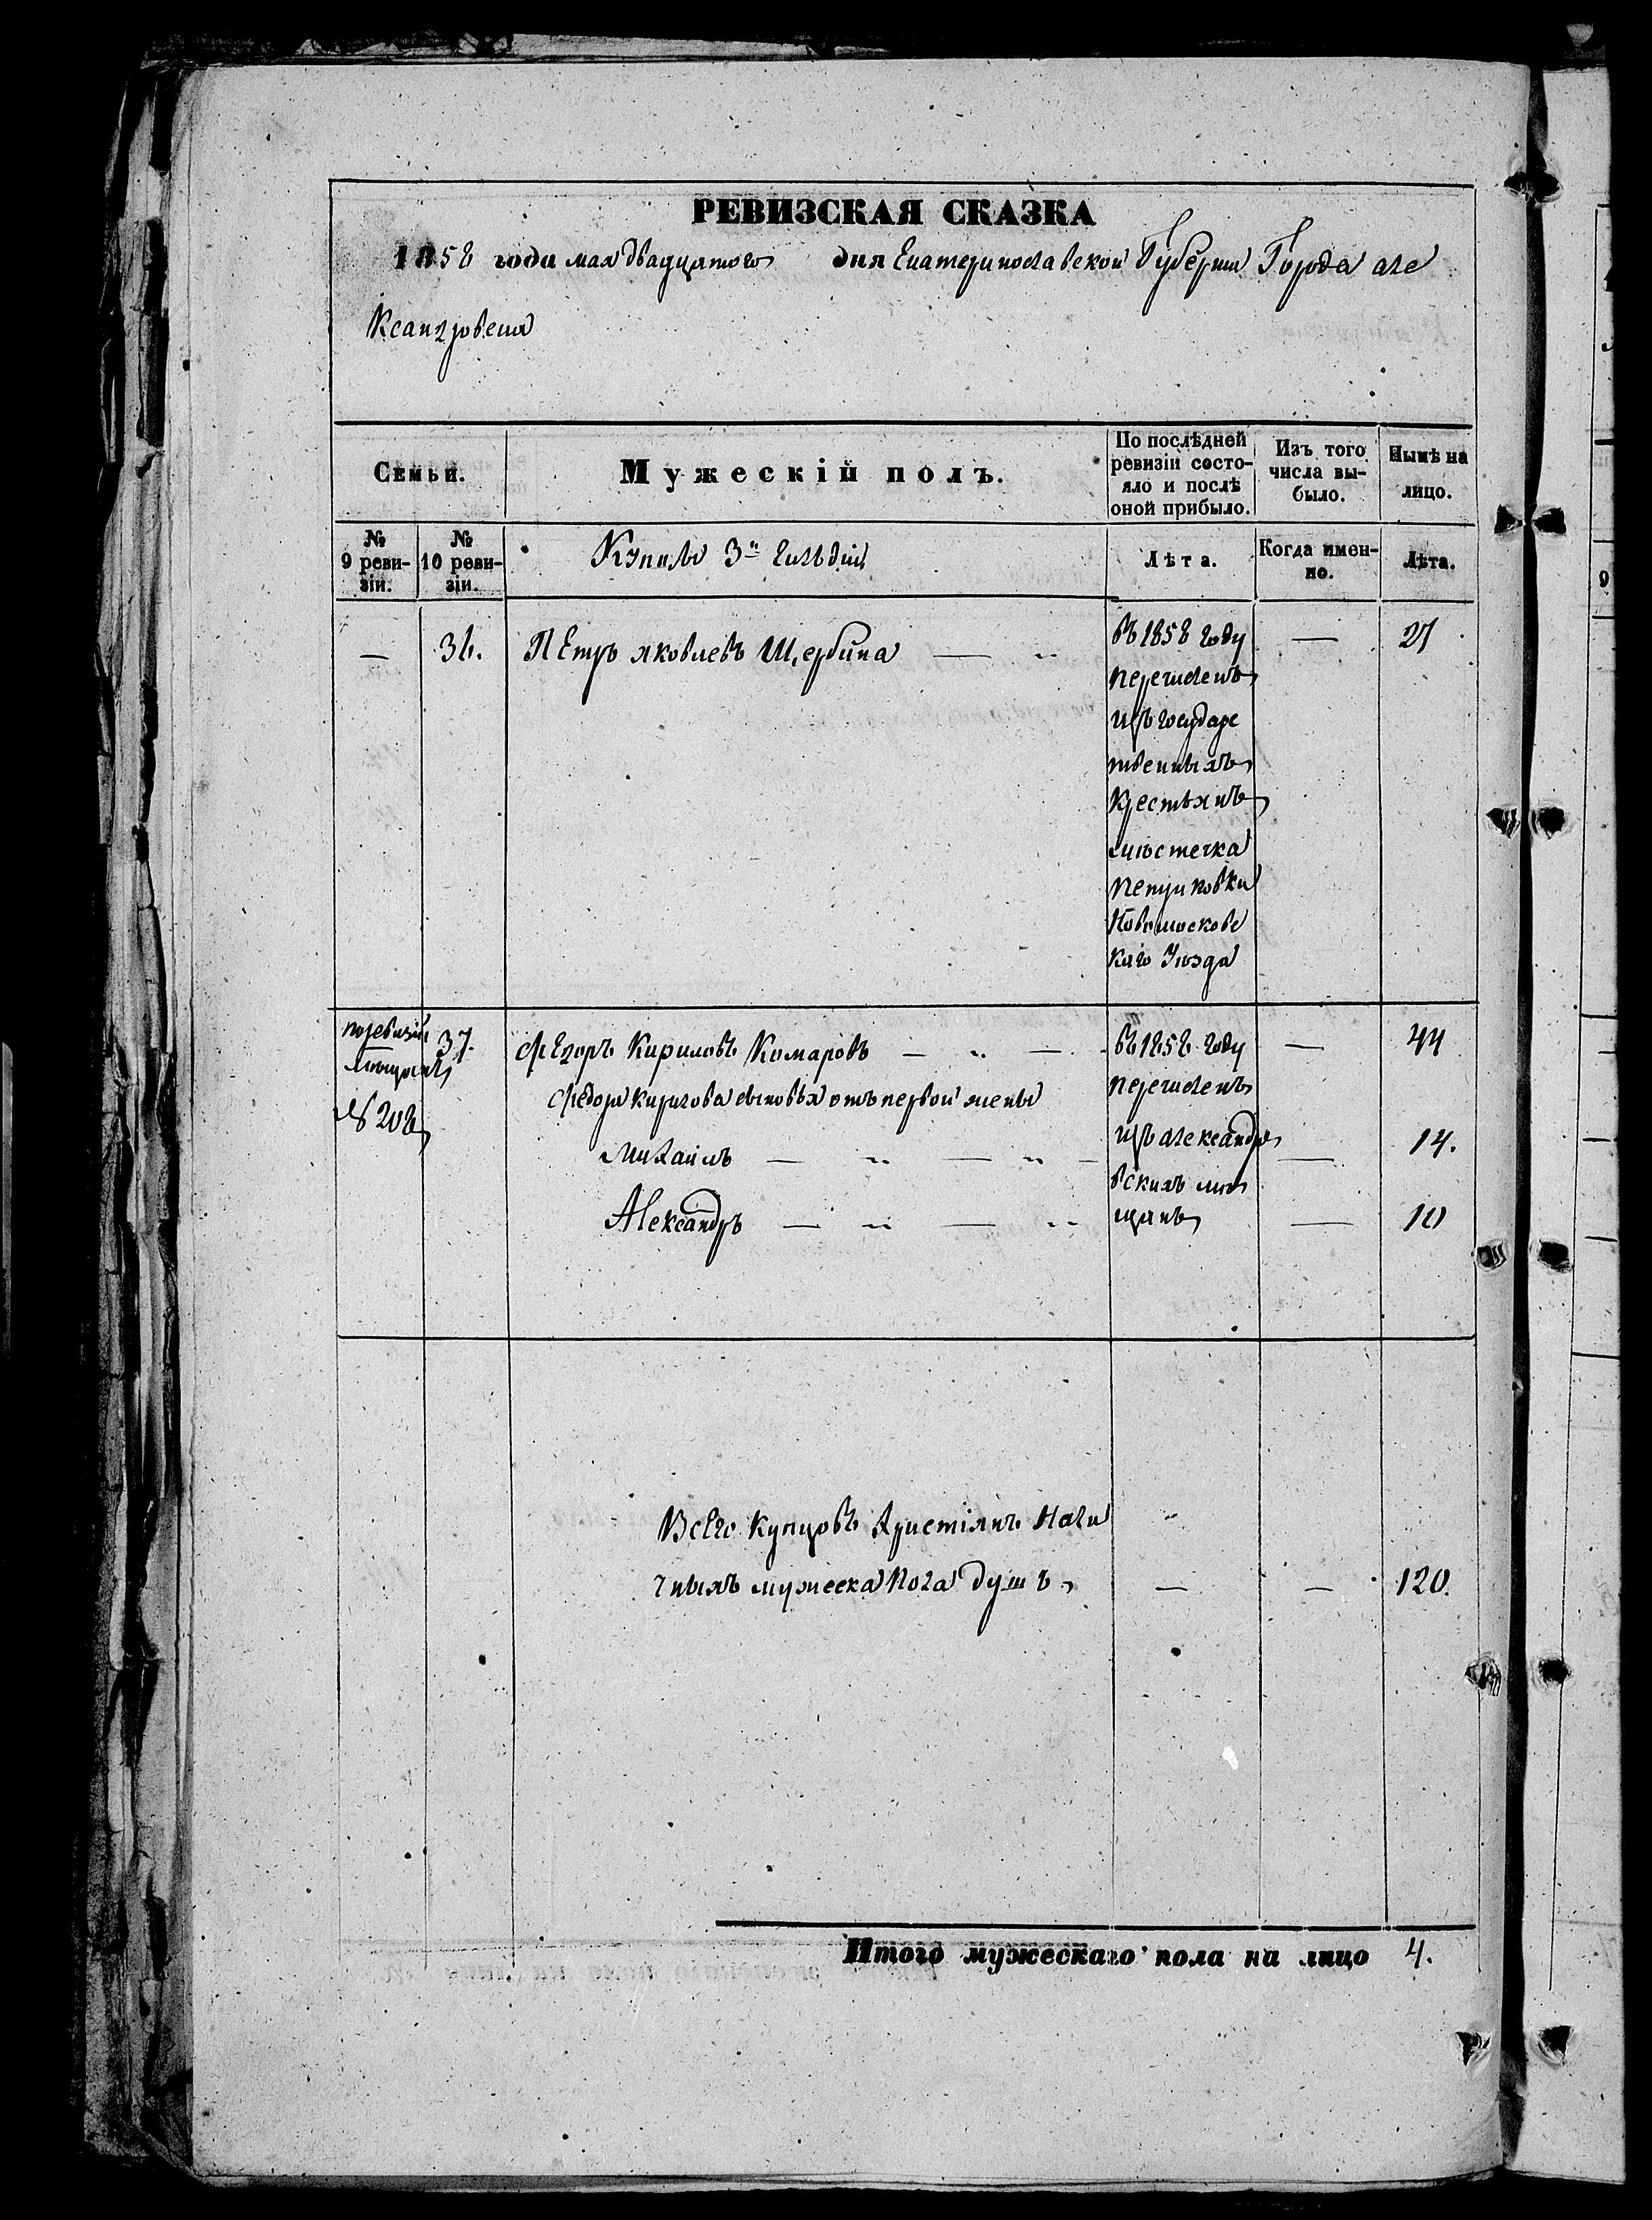 РЕВИЗСКАЯ СКАЗКА
1858 года мая двадцятого дня Екатеринославской Губернии Города Але
ксандровска
Семьи.
Мужескій полъ.
По послѣдней
ревизіи состо-
яло и послѣ
оной прибыло.
Изъ того
числа вы-
было.
Нынѣ на
лицо.
№
9 реви-
зіи.
№
10 реви-
зіи.
Купцы 3й Гильдіи
Лѣта.
Когда имен-
но.
Лѣта.
— 36. Петръ Яковлевъ Щербина — „ въ 1858 году — 27
перечисленъ
изъ государс
твенныхъ
крестьянъ
мѣстечка
Петриковки
Новомосковс
каго Уѣзда
поревизіи
мѣщанъ
№ 208
37. Федоръ Кириловъ Комаровъ — „ — въ 1858 году — 44
Федора Кирилова сыновья отъ первой жены перечисленъ
Михаилъ — „ — „ — изъ александро — 14.
вскихъ мѣ
Александръ — „ — „ щанъ — 10
Всего купцовъ христіянъ Нали
чныхъ мужеска пола душъ — — 120.
Итого мужескаго пола на лицо 4.
9